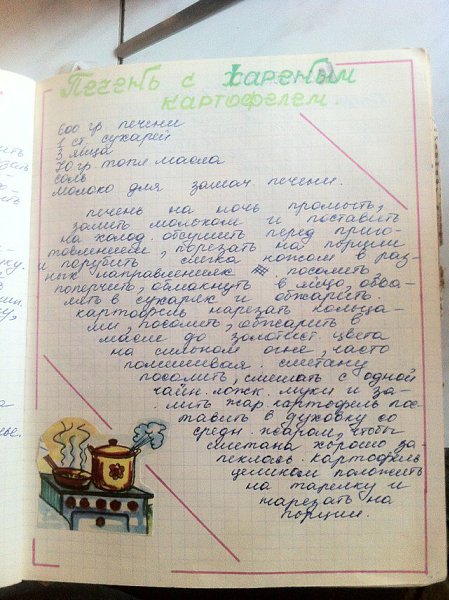 Печень с жареным
картофелем.
600 гр печени
1 ст. сухарей
3 яйца
70 гр топл масла
соль
молоко для замач печени.
печень на ночь промыть,
залить молоком и поставить
на холод. обсушить перед приго-
товлением, порезать на порции
и порубить слегка ножом в раз-
ных направлениях посолить,
поперчить, обмакнуть в яйцо, обва-
лять в сухарях и обжарить.
картофель нарезать кольца-
ми, посолить, обжарить в
масле до золотист. цвета
на сильном огне, часто
помешивая. сметану
посолить, смешать с одной
чайн. ложк. муки и за-
лить жар. картофель пос-
тавить в духовку со
средн. жаром, чтобы
сметана хорошо за-
пеклась. картофель
целиком положить
на тарелку и
нарезать на
порции.